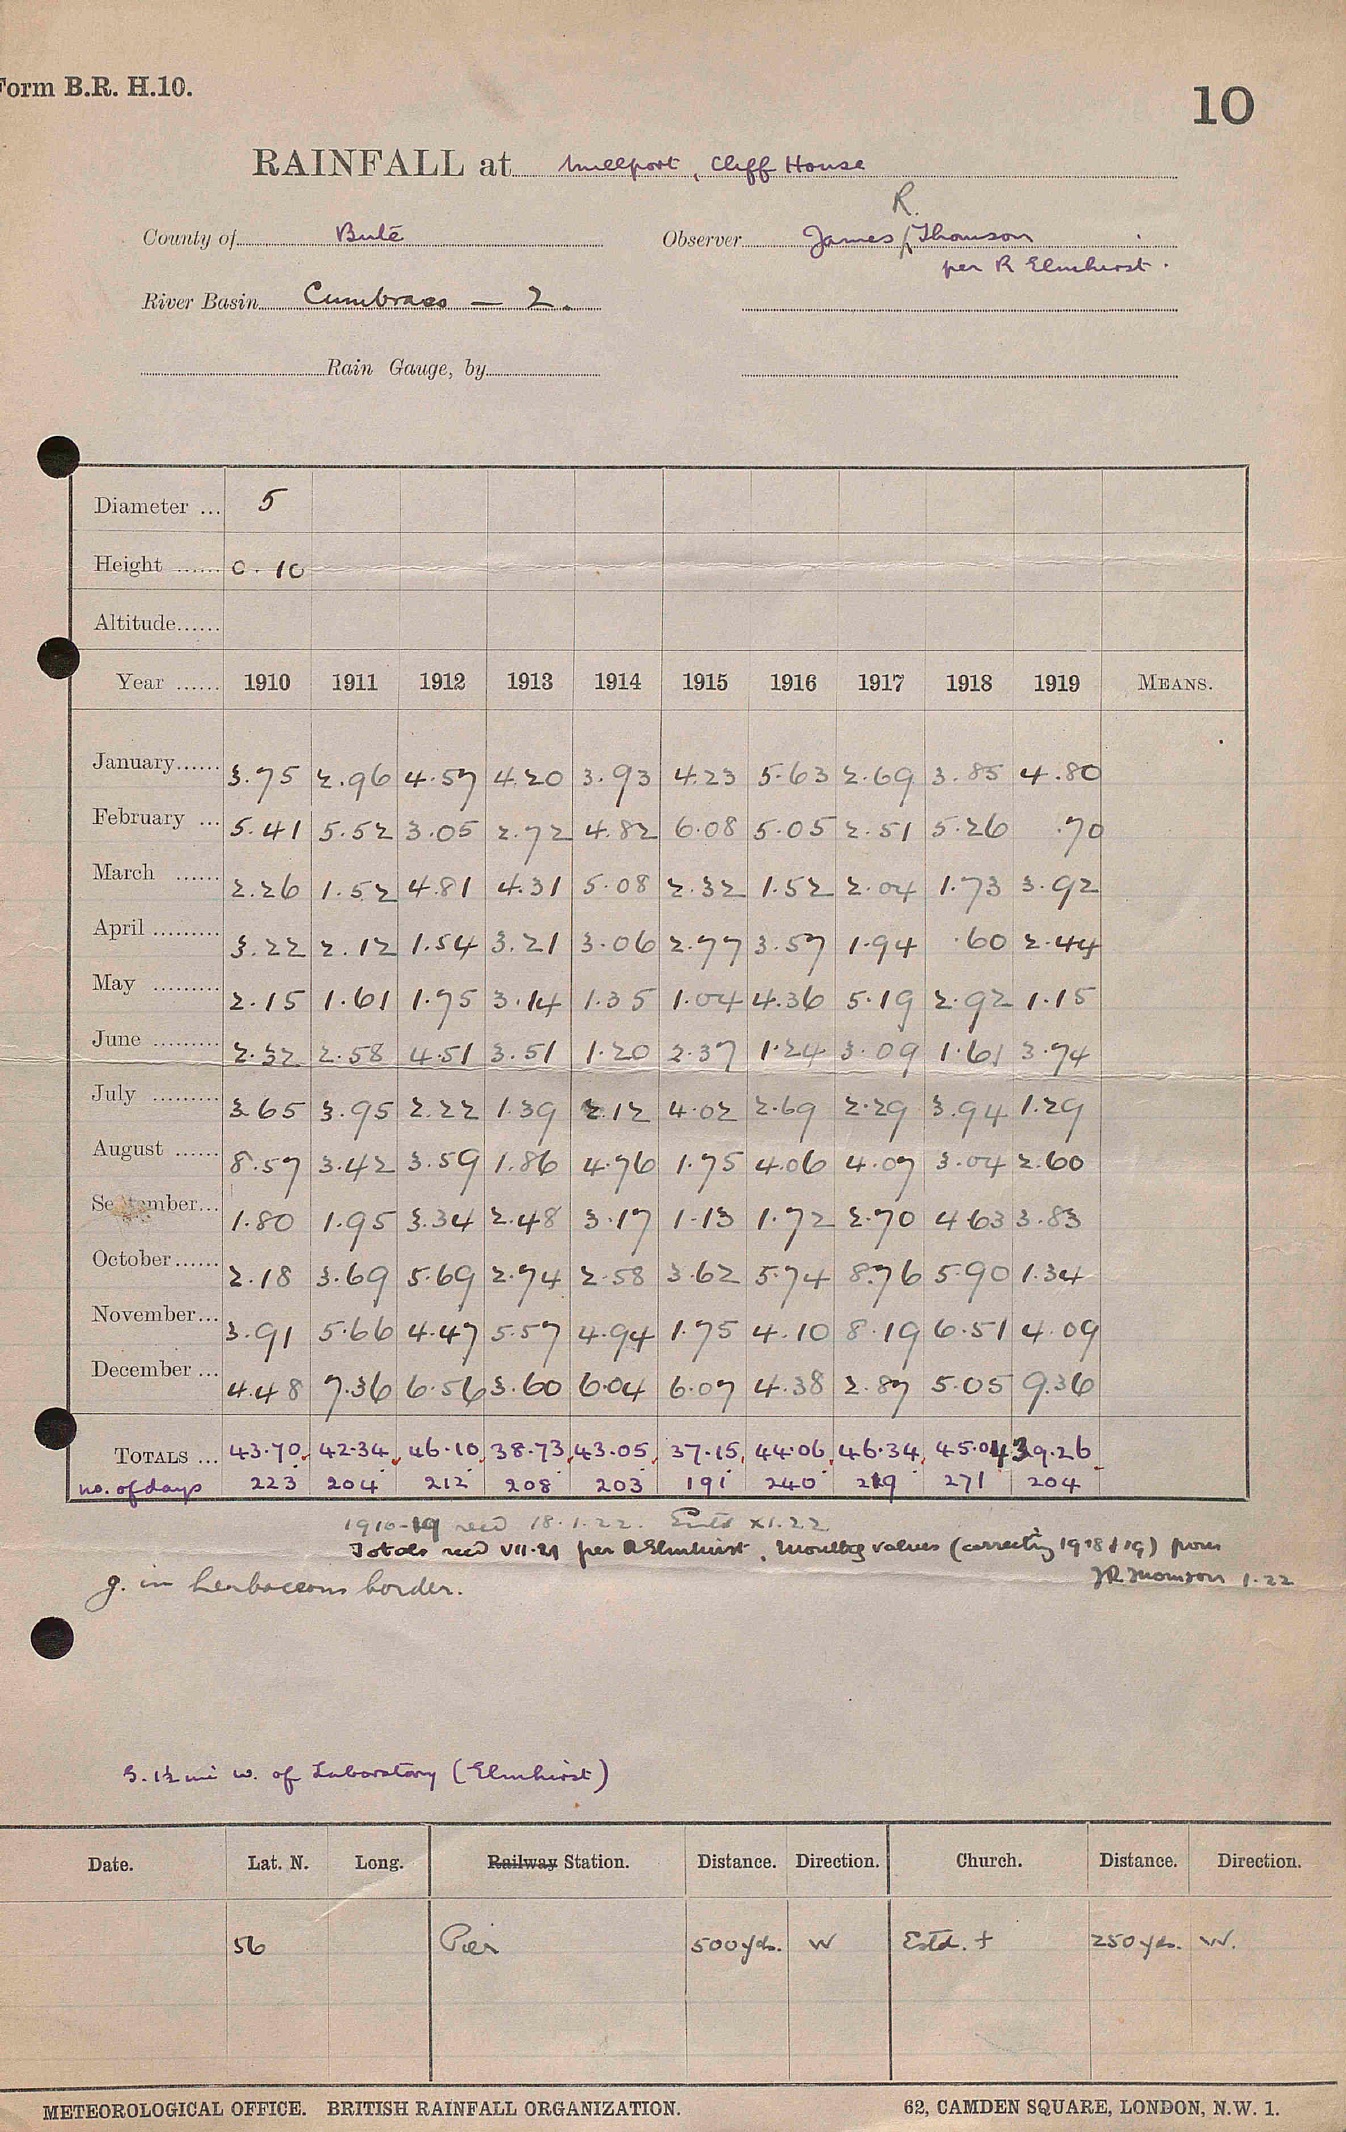 Form B.R. H.10.
10
RAINFALL at Millport, Cliff House
R.
County of Bute Observer James Thomson
per R Elmhirst.
River Basin Cumbraes — 2.
Rain Gauge, by
Diameter ... 5
Height ...... 0.10
Altitude......
Year ...... 1910 1911 1912 1913 1914 1915 1916 1917 1918 1919 MEANS.
January...... 3.75 2.96 4.57 4.20 3.93 4.23 5.63 2.69 3.85 4.80
February ... 5.41 5.52 3.05 2.72 4.82 6.08 5.05 2.51 5.26 .70
March ...... 2.26 1.52 4.81 4.31 5.08 2.32 1.52 2.04 1.73 3.92
April ......... 3.22 2.12 1.54 3.21 3.06 2.77 3.57 1.94 .60 2.44
May ......... 2.15 1.61 1.75 3.14 1.35 1.04 4.36 5.19 2.92 1.15
June ......... 2.32 2.58 4.51 3.51 1.20 2.37 1.24 3.09 1.61 3.74
July ......... 3.65 3.95 2.22 1.39 2.12 4.02 2.69 2.29 3.94 1.29
August ...... 8.57 3.42 3.59 1.86 4.76 1.75 4.06 4.07 3.04 2.60
September... 1.80 1.95 3.34 2.48 3.17 1.13 1.72 2.70 4.63 3.83
October...... 2.18 3.69 5.69 2.74 2.58 3.62 5.74 8.76 5.90 1.34
November... 3.91 5.66 4.47 5.57 4.94 1.75 4.10 8.19 6.51 4.09
December ... 4.48 7.36 6.56 3.60 6.04 6.07 4.38 2.87 5.05 9.36
TOTALS ... 43.70 42.34 46.10 38.73 43.05 37.15 44.06 46.34 45.04 39.26
no. of days 223 204 212 208 203 191 240 219 271 204
1910-19 recd 18.1.22. Entd X1.22
Totals recd VII.21 per R Elmhirst, Monthly values (correcting 1918 & 19) from
JR Thomson 1.22
g. in herbaceous border.
3. 1½ mi w. of Laboratory (Elmhirst)
Date. Lat. N. Long. Railway Station. Distance. Direction. Church. Distance. Direction.
56 Pier 500 yds. W Estd. + 250 yds. W.
METEOROLOGICAL OFFICE. BRITISH RAINFALL ORGANIZATION. 62, CAMDEN SQUARE, LONDON, N.W. 1.